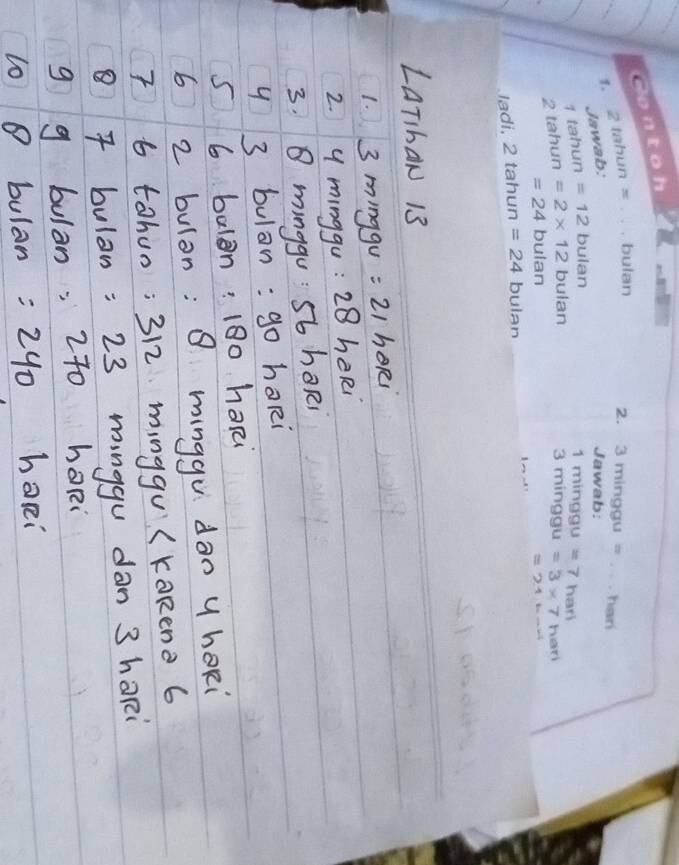 Contoh
1. 2 tahun = ... bulan
Jawab:
1 tahun = 12 bulan
2 tahun = 2 × 12 bulan
= 24 bulan
Jadi, 2 tahun = 24 bulan
2. 3 minggu = ... hari
Jawab:
1 minggu = 7 hari
3 minggu = 3 × 7 hari
LATIHAN 13
1. 3 minggu = 21 hari
2. 4 minggu : 28 hari
3. 8 minggu : 56 hari
4 3 bulan : 90 hari
5 6 bulan : 180 hari
6 2 bulan : 8 minggu dan 4 hari
7 6 tahun : 312 minggu < karena 6
8 7 bulan : 23 minggu dan 3 hari
9 9 bulan : 270 hari
10 8 bulan : 240 hari